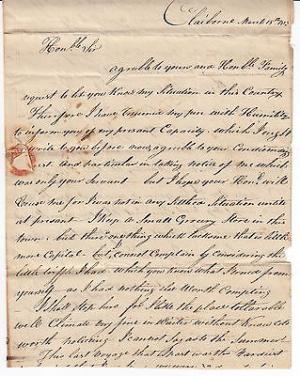 Claiborne March 15th
Honble Sir
agreable to yours and Honble Family
request to let you Know my Situation in this Country
Therefore I have Assumed my pen with Humility
to inform you of my present Capacity which I ought
write to you before now agreable to your
and particular in taking notice of me which
was only your Servant but I hope your Honr will
Excuse me for I was not in any Settled Situation untill
at present I Keep a Small Grocery Store in this
town but there's nothing which because that is little
more Capital but, cannot Complain by Considering the
little I had which you Know what from
yourself as I had nothing Else Worth
I shall stop here for I like the place tollerable
well Climate very fine in Winter without Snow
worth noticing I cannot Say as to the Summer
This last Voyage that I past was the Hardest